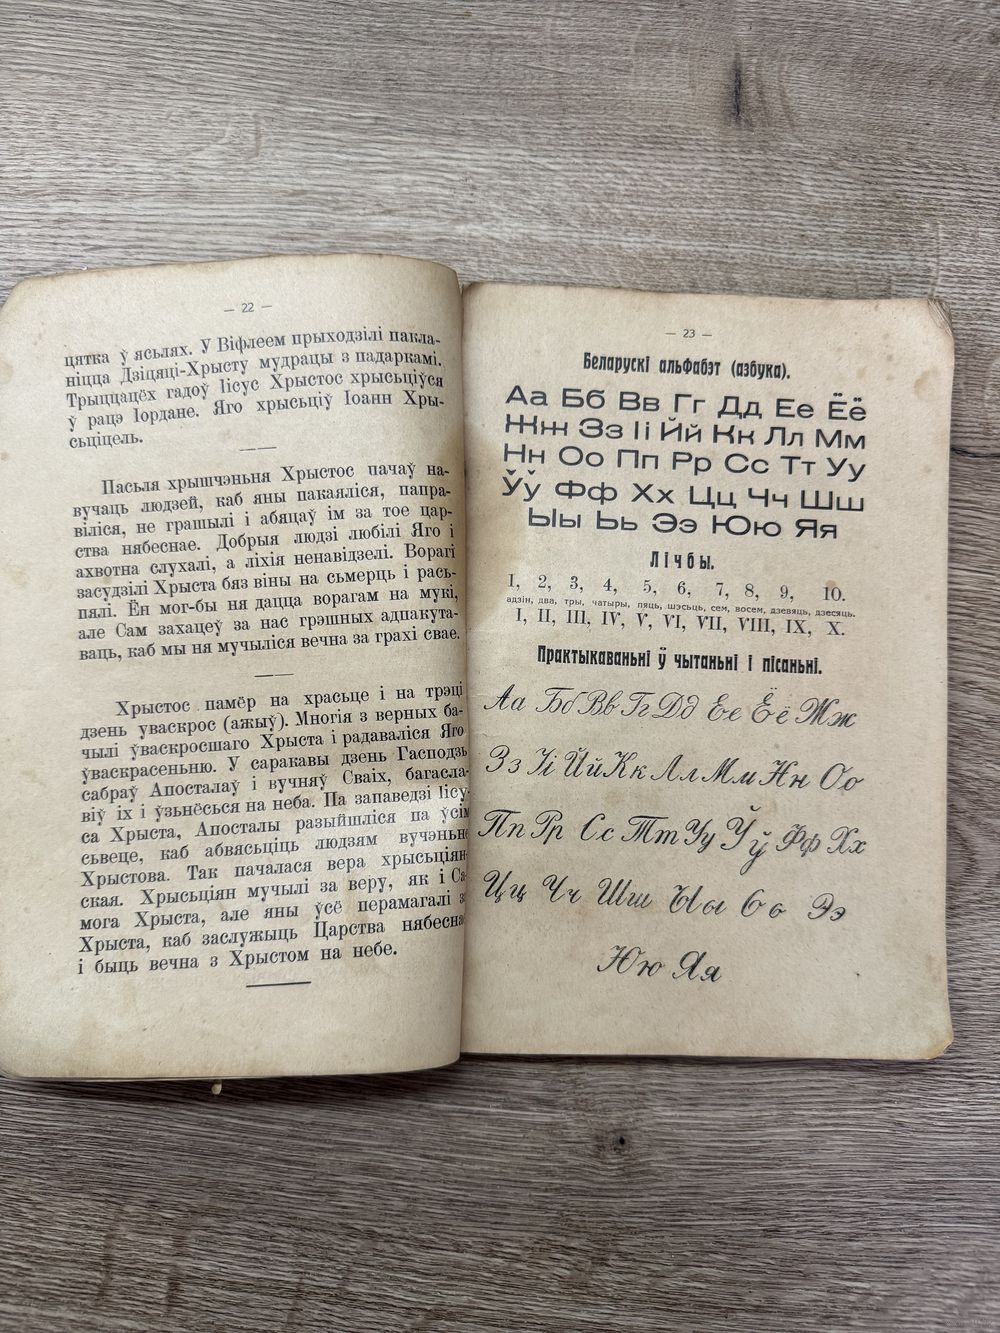 — 22 —
цятка ў ясьлях. У Віфлеем прыходзілі пакла-
ніцца Дзіцяці-Хрысту мудрацы з падаркамі.
Трыццацёх гадоў Іісус Хрыстос хрысьціўся
ў рацэ Іордане. Яго хрысьціў Іоанн Хры-
сьціцель.
Пасьля хрышчэньня Хрыстос пачаў на-
вучаць людзей, каб яны пакаяліся, папра-
віліся, не грашылі і абяцаў ім за тое цар-
ства нябеснае. Добрыя людзі любілі Яго і
ахвотна слухалі, а ліхія ненавідзелі. Ворагі
засудзілі Хрыста бяз віны на сьмерць і рась-
пялі. Ён мог-бы ня дацца ворагам на мукі,
але Сам захацеў за нас грэшных адпакута-
ваць, каб мы ня мучыліся вечна за грахі свае.
Хрыстос памёр на храсьце і на трэці
дзень уваскрос (ажыў). Многія з верных ба-
чылі ўваскросшаго Хрыста і радаваліся Яго
ўваскрасеньню. У саракавы дзень Гасподзь
сабраў Апосталаў і вучняў Сваіх, багасла-
віў іх і ўзьнёсься на неба. Па запаведзі Іісу-
са Хрыста, Апосталы разыйшліся па ўсім
сьвеце, каб абвясьціць людзям вучэньне
Хрыстова. Так пачалася вера хрысьціян-
ская. Хрысьціян мучылі за веру, як і Са-
мога Хрыста, але яны ўсё перамагалі з
Хрыста, каб заслужыць Царства нябеснае
і быць вечна з Хрыстом на небе.
— 23 —
Беларускі альфабэт (азбука).
Аа Бб Вв Гг Дд Ее Ёё
Жж Зз Іі Йй Кк Лл Мм
Нн Оо Пп Рр Сс Тт Уу
Ўў Фф Хх Цц Чч Шш
Ыы Ьь Ээ Юю Яя
Лічбы.
1, 2, 3, 4, 5, 6, 7, 8, 9, 10.
адзін, два, тры, чатыры, пяць, шэсьць, сем, восем, дзевяць, дзесяць.
I, II, III, IV, V, VI, VII, VIII, IX, X.
Практыкаваньні ў чытаньні і пісаньні.
Аа Бб Вв Гг Дд Ее Ёё Жж
Зз Іі Йй Кк Лл Мм Нн Оо
Пп Рр Сс Тт Уу Ўў Фф Хх
Цц Чч Шш Ыы Ьь Ээ
Юю Яя